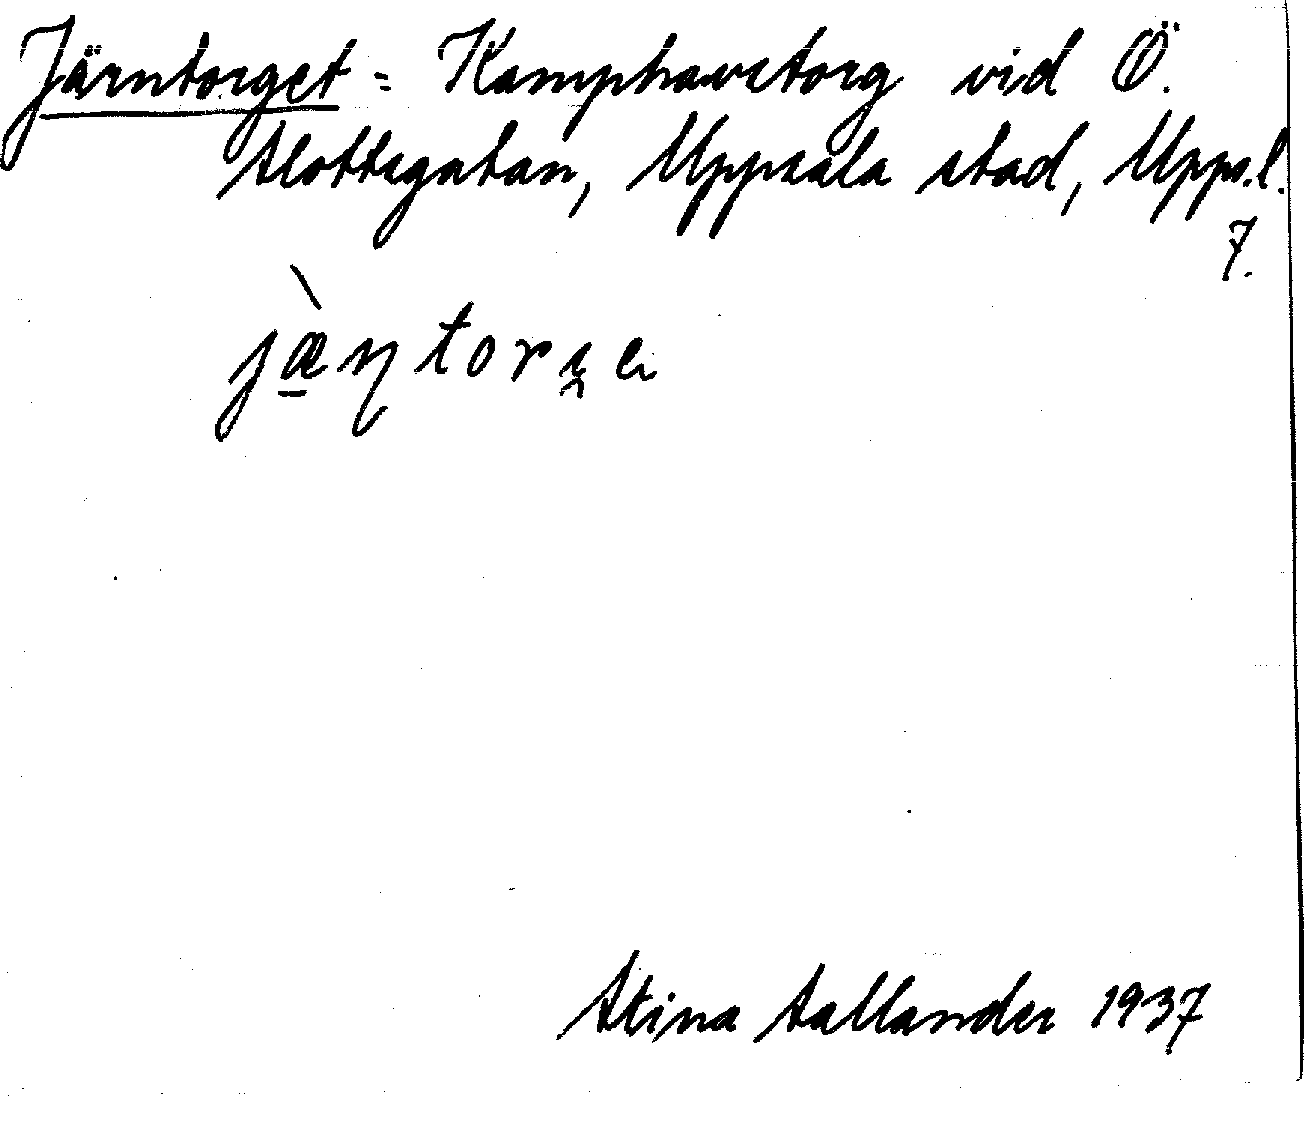 Järntorget = Kamphavetorg vid Ö.
Slottsgatan, Uppsala stad, Upps.l.
7.
Stina Sallander 1937